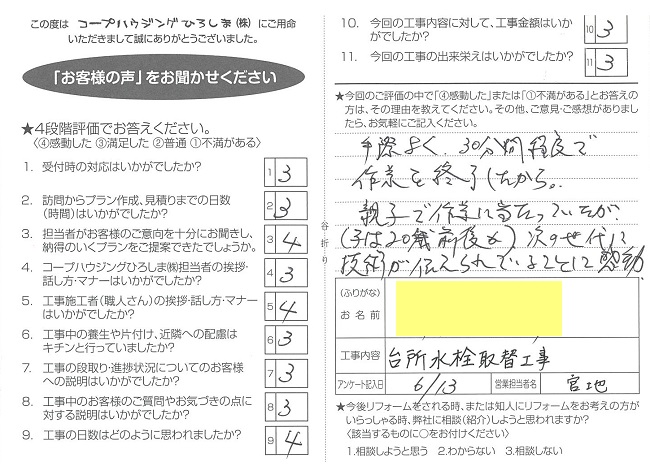 この度は コープハウジングひろしま(株) にご用命
いただきまして誠にありがとうございました。
「お客様の声」をお聞かせください
★4段階評価でお答えください。
〈④感動した ③満足した ②普通 ①不満がある〉
1. 受付時の対応はいかがでしたか?
1 3
2. 訪問からプラン作成、見積りまでの日数
(時間)はいかがでしたか?
2 3
3. 担当者がお客様のご意向を十分にお聞きし、
納得のいくプランをご提案できたでしょうか。
3 4
4. コープハウジングひろしま㈱担当者の挨拶・
話し方・マナーはいかがでしたか?
4 3
5. 工事施工者(職人さん)の挨拶・話し方・マナー
はいかがでしたか?
5 4
6. 工事中の養生や片付け、近隣への配慮は
キチンと行っていましたか?
6 3
7. 工事の段取り・進捗状況についてのお客様
への説明はいかがでしたか?
7 3
8. 工事中のお客様のご質問やお気づきの点に
対する説明はいかがでしたか?
8 3
9. 工事の日数はどのように思われましたか?
9 4
谷折り
10. 今回の工事内容に対して、工事金額はいか
がでしたか?
10 3
11. 今回の工事の出来栄えはいかがでしたか?
11 3
★今回のご評価の中で「④感動した」または「①不満がある」とお答えの
方は、その理由を教えてください。その他、ご意見・ご感想がありまし
たら、お気軽にご記入ください。
手際よく、30分間程度で
作業を終了したから。
親子で作業に当たっていたが
(子は20歳前後か) 次の世代に
技術が伝えられていることに感動
(ふりがな)
お名前
工事内容 台所水栓取替工事
アンケート記入日 6/13 営業担当者名 宮地
★今後リフォームをされる時、または知人にリフォームをお考えの方が
いらっしゃる時、弊社に相談(紹介)しようと思われますか?
〈該当するものに○をお付けください〉
1.相談しようと思う 2.わからない 3.相談しない